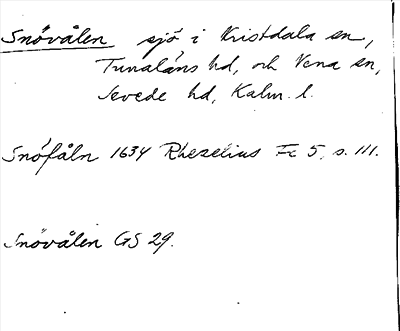 Snövålen sjö i Kristdala sn,
Tunaläns hd, och Vena sn,
Sevede hd, Kalm. l.
Snöfåln 1634 Rhezelius Fc 5, s. 111.
Snövålen GS 29.